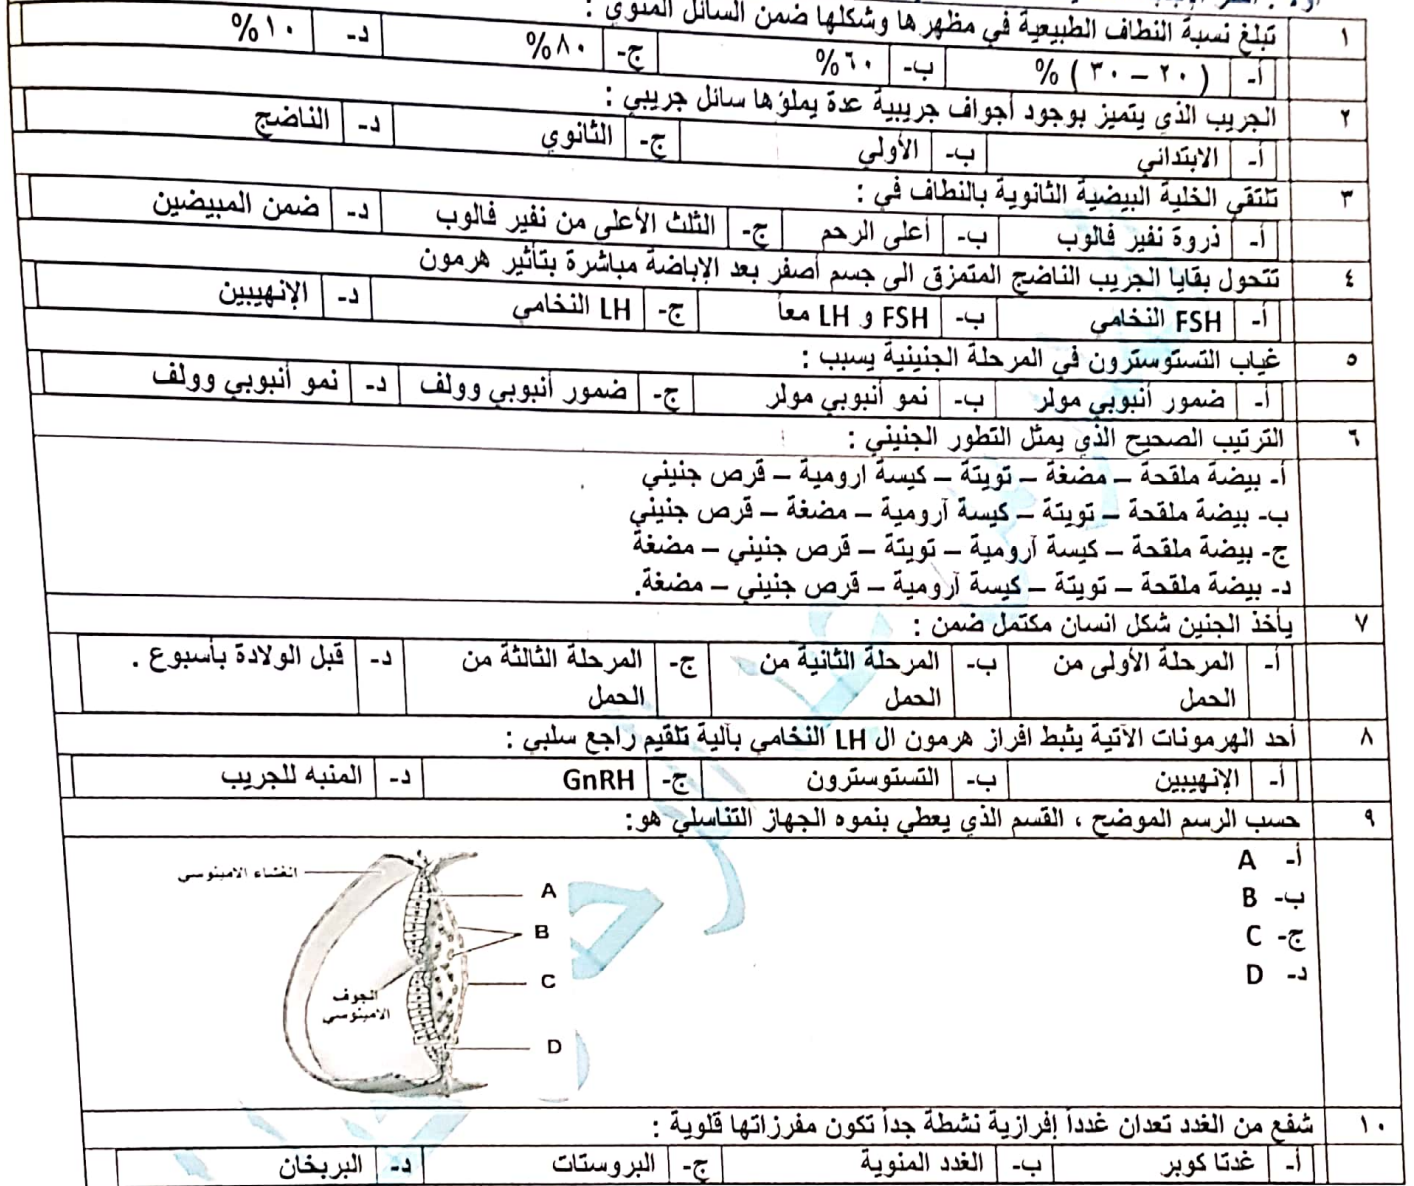 ١ تبلغ نسبة النطاف الطبيعية في مظهرها وشكلها ضمن السائل المنوي :
أ- ( ٢٠ – ٣٠ ) % ب- ٦٠% ج- ٨٠% د- ١٠%
٢ الجريب الذي يتميز بوجود أجواف جريبية عدة يملؤها سائل جريبي :
أ- الابتدائي ب- الأولي ج- الثانوي د- الناضج
٣ تلتقي الخلية البيضية الثانوية بالنطاف في :
أ- ذروة نفير فالوب ب- أعلى الرحم ج- الثلث الأعلى من نفير فالوب د- ضمن المبيضين
٤ تتحول بقايا الجريب الناضج المتمزق الى جسم أصفر بعد الإباضة مباشرة بتأثير هرمون
أ- FSH النخامي ب- FSH و LH معاً ج- LH النخامي د- الإنهيبين
٥ غياب التستوسترون في المرحلة الجنينية يسبب :
أ- ضمور أنبوبي مولر ب- نمو أنبوبي مولر ج- ضمور أنبوبي وولف د- نمو أنبوبي وولف
٦ الترتيب الصحيح الذي يمثل التطور الجنيني :
أ- بيضة ملقحة – مضغة – تويتة – كيسة ارومية – قرص جنيني
ب- بيضة ملقحة – تويتة – كيسة آرومية – مضغة – قرص جنيني
ج- بيضة ملقحة – كيسة آرومية – تويتة – قرص جنيني – مضغة
د- بيضة ملقحة – تويتة – كيسة آرومية – قرص جنيني – مضغة.
٧ يأخذ الجنين شكل انسان مكتمل ضمن :
أ- المرحلة الأولى من الحمل ب- المرحلة الثانية من الحمل ج- المرحلة الثالثة من الحمل د- قبل الولادة بأسبوع .
٨ أحد الهرمونات الآتية يثبط افراز هرمون ال LH النخامي بآلية تلقيم راجع سلبي :
أ- الإنهيبين ب- التستوسترون ج- GnRH د- المنبه للجريب
٩ حسب الرسم الموضح ، القسم الذي يعطي بنموه الجهاز التناسلي هو:
أ- A
ب- B
ج- C
د- D
الغشاء الامينوسي
A
B
C
الجوف
الامينوسي
D
١٠ شفع من الغدد تعدان غدداً إفرازية نشطة جداً تكون مفرزاتها قلوية :
أ- غدتا كوبر ب- الغدد المنوية ج- البروستات د- البربخان